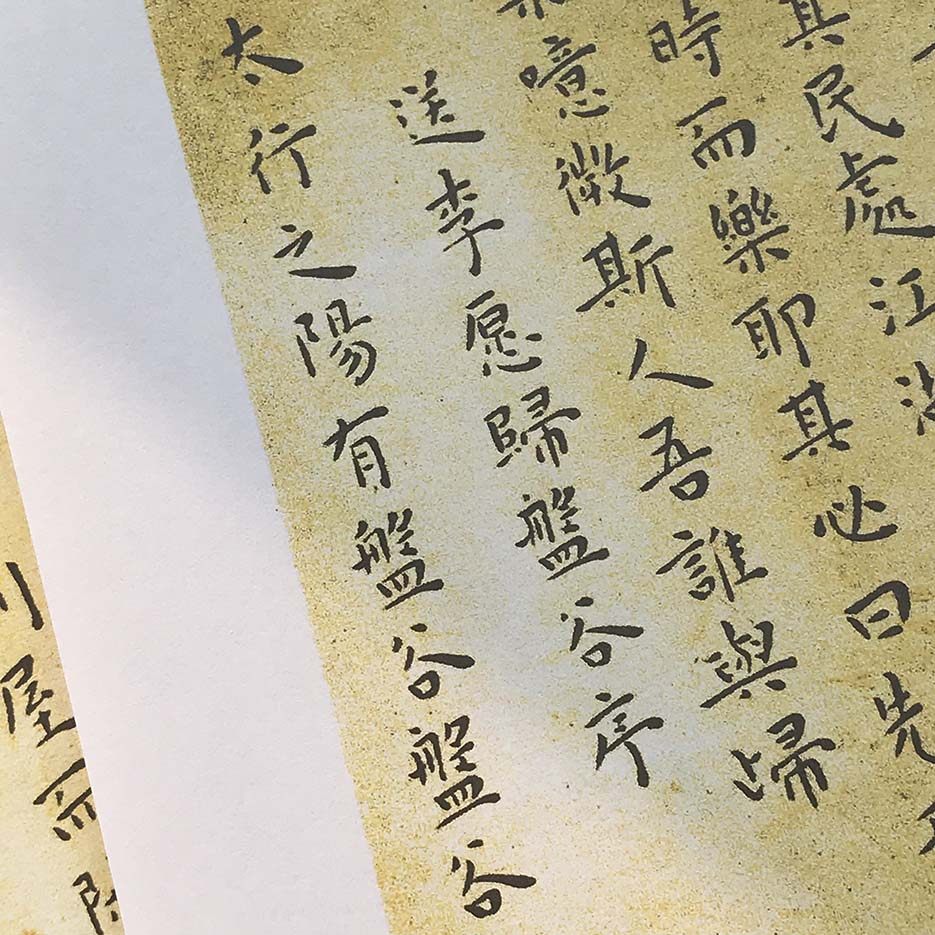 其民處江
時而樂耶其必曰先
噫微斯人吾誰與歸
送李愿歸盤谷序
太行之陽有盤谷盤谷
屋而